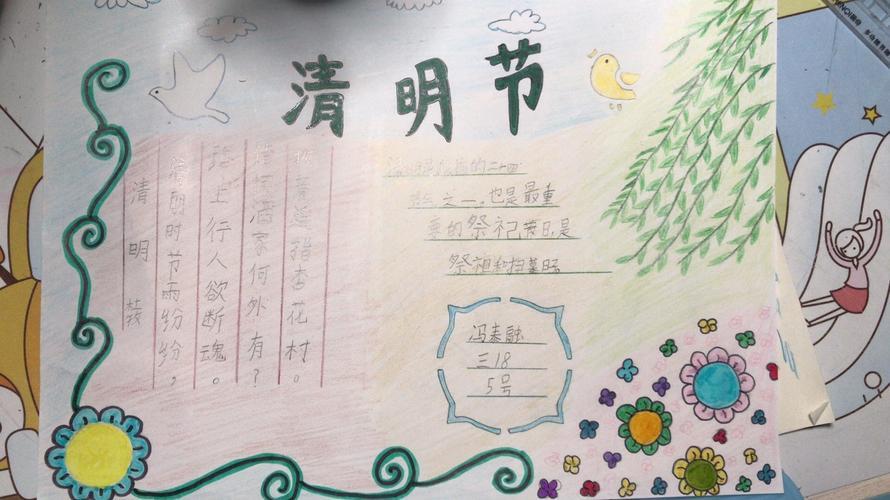 清明节
清明
清明时节雨纷纷。
路上行人欲断魂。
借问酒家何外有？
牧童遥指杏花村。
清明是 的二十四
节气之一,也是最重
要的祭祀节日,是
祭祖和扫墓
冯泰融
三18
5号